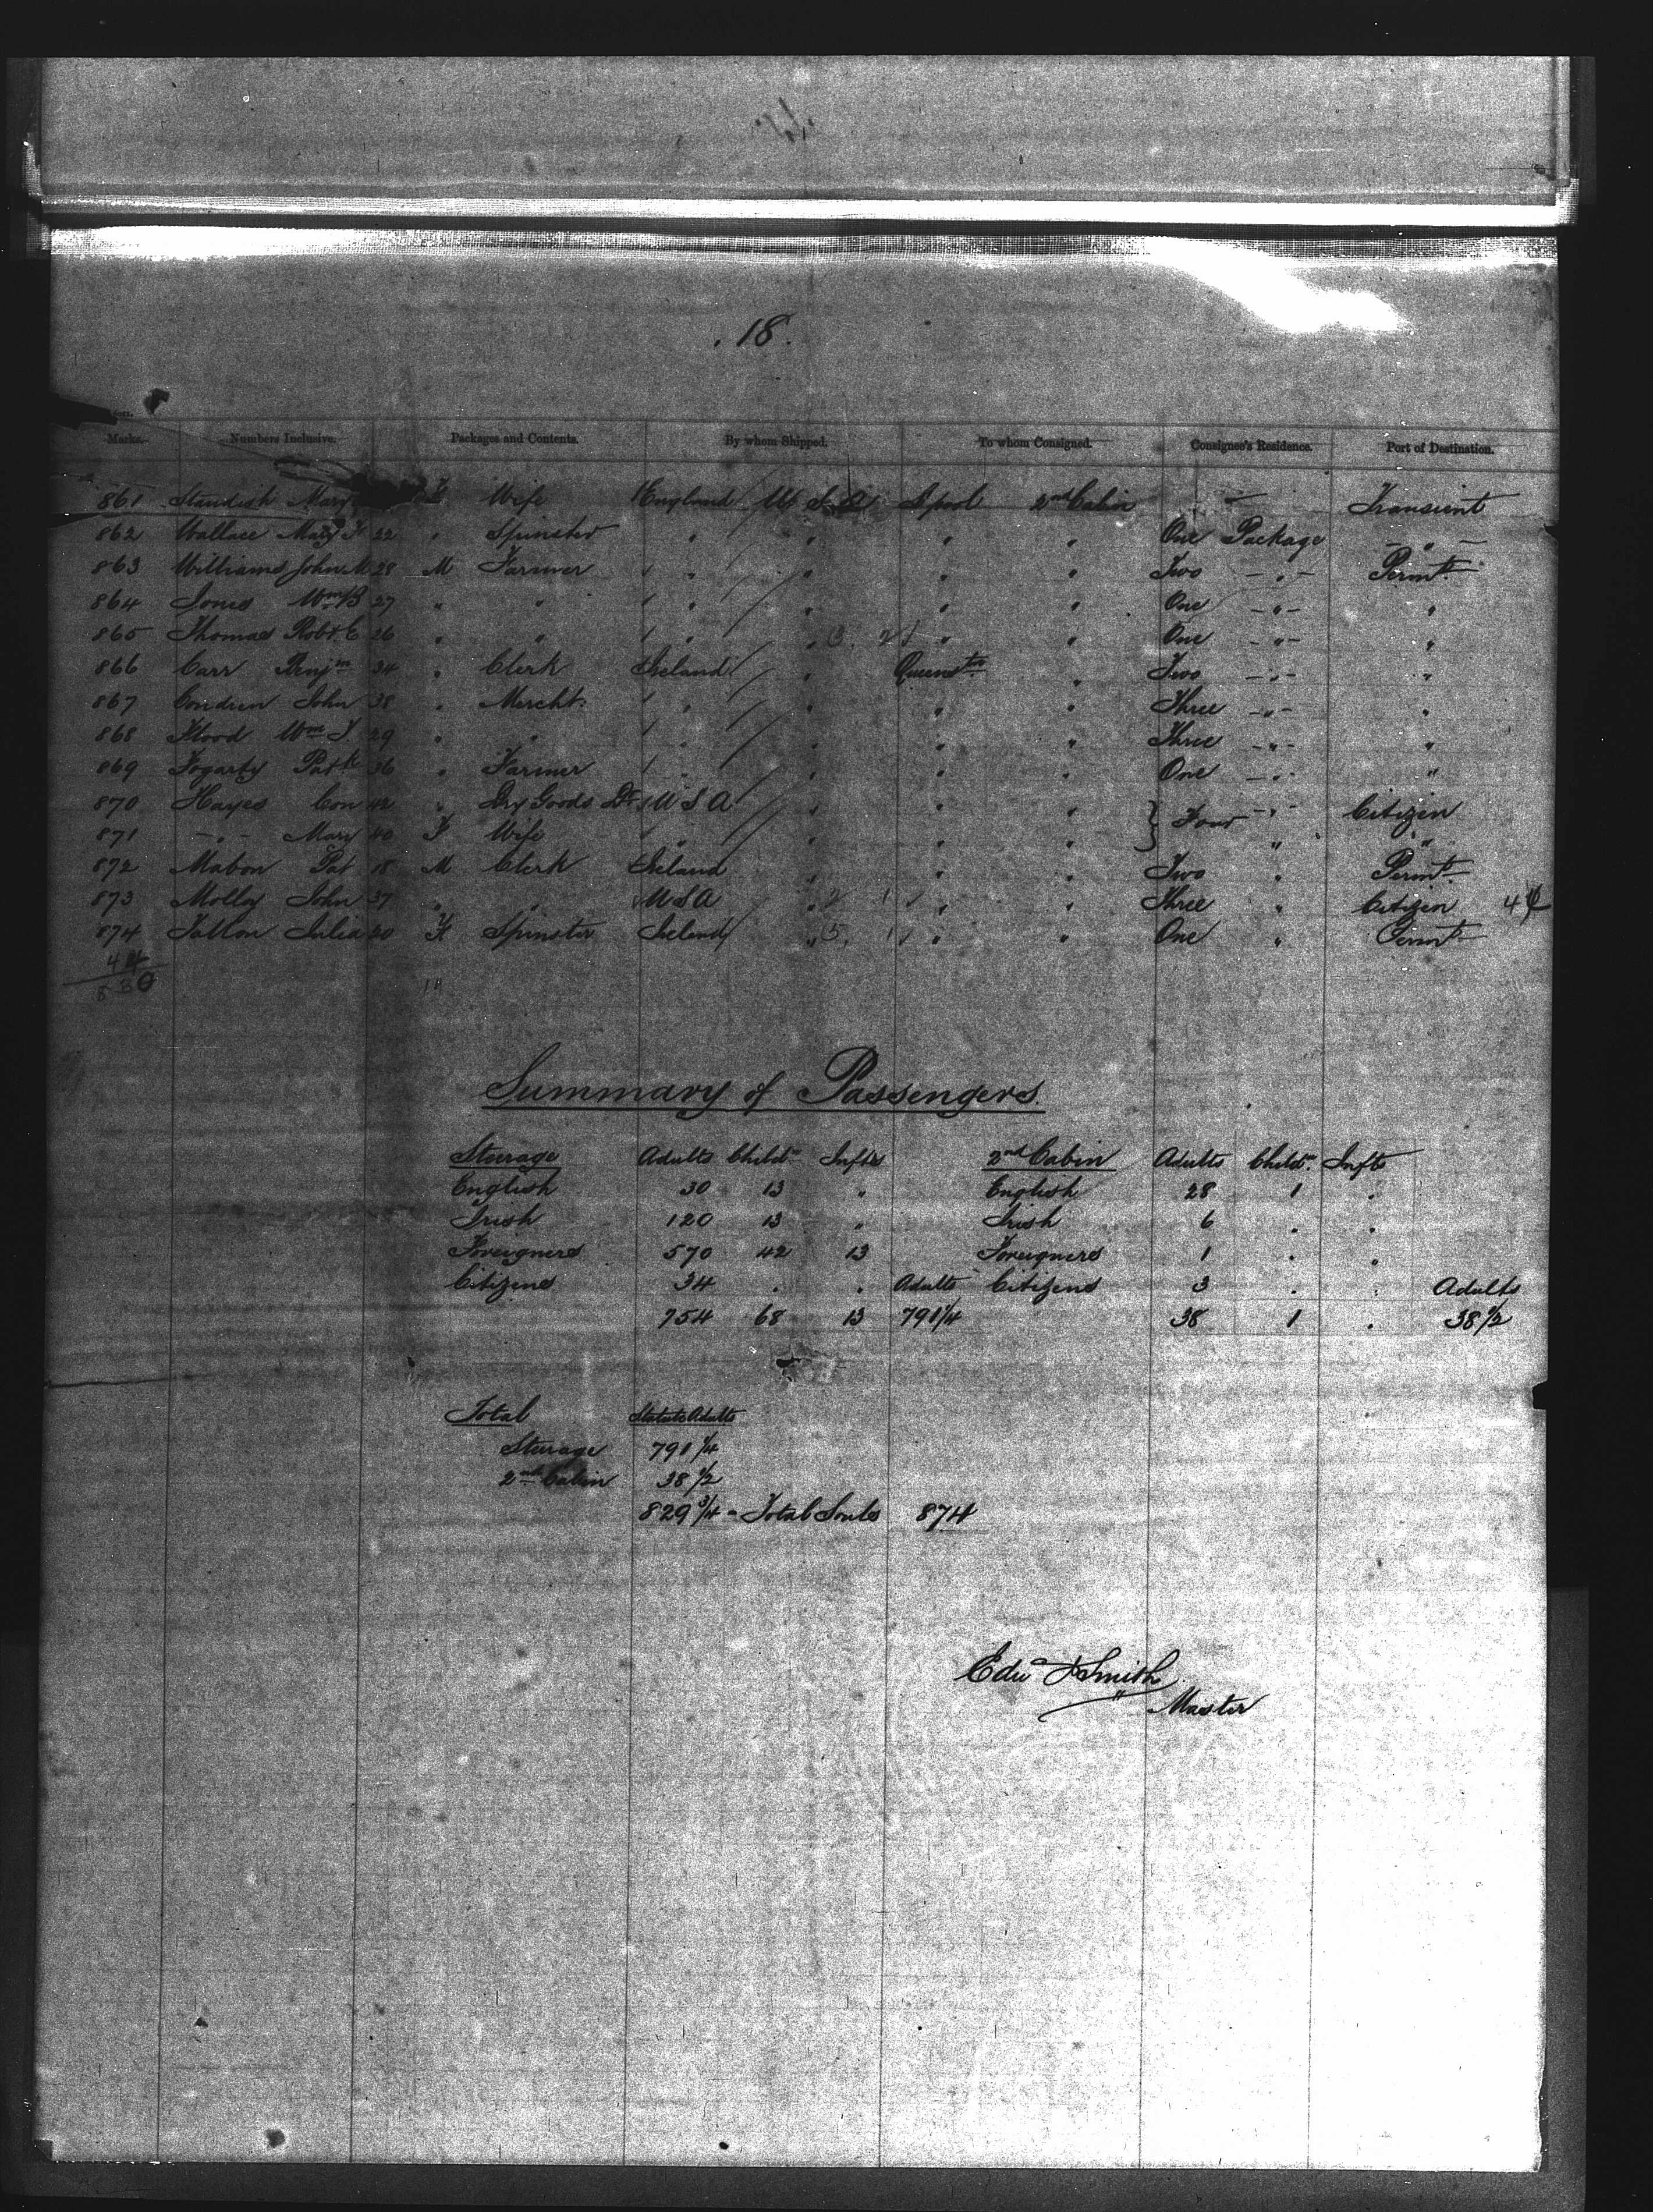 . 18 .
Marks. Numbers Inclusive. Packages and Contents. By whom Shipped. To whom Consigned. Consignee's Residence. Port of Destination.
861 Standish Mary F Wife England U S A Lpool 2nd Cabin — Transient
862 Wallace Mary F 22 " Spinster " " " " One Package - " -
863 Williams John M 28 M Farmer " " " " Two - " - Permt
864 Jones Wm B 27 " " " " " " One - " - "
865 Thomas Robt C 26 " " " " " " One - " - "
866 Carr Benjm 34 " Clerk Ireland " Queenstn " Two - " - "
867 Condren John 38 " Mercht. " " " " Three - " - "
868 Flood Wm J. 29 " " " " " " Three - " - "
869 Fogarty Patk 36 " Farmer " " " " One - " - "
870 Hayes Con 42 " Dry Goods Dr U S A " " " Four - " - Citizen
871 - " - Mary 40 F Wife " " " " " "
872 Mabon Pat 18 M Clerk Ireland " " " Two " Permt.
873 Molloy John 37 " " U S A " " " Three " Citizen
874 Tallon Julia 20 F Spinster Ireland " " " One " Permt
44
830
Summary of Passengers.
Steerage Adults Childn. Infts 2nd Cabin Adults Childn. Infts
English 30 13 " English 28 1 .
Irish 120 13 " Irish 6 . .
Foreigners 570 42 13 Foreigners 1 . "
Citizens 34 . . Adults Citizens 3 . . Adults
754 68 13 791 1/4 38 1 . 38 1/2
Total Statute Adults
Steerage 791 1/4
2nd Cabin 38 1/2
829 3/4 - Total Souls 874
Edwd J Smith
Master